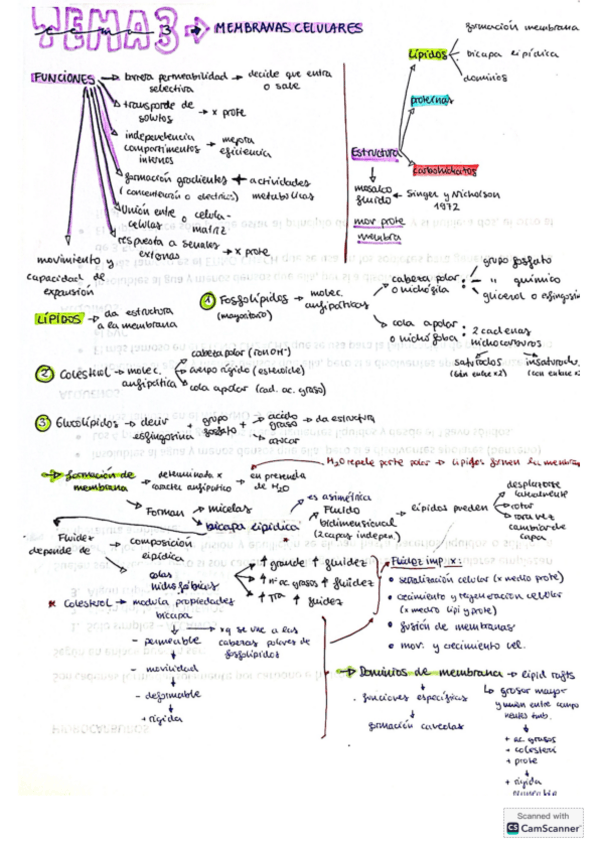 TEMA 3
tema 3 → MEMBRANAS CELULARES
FUNCIONES → barrera permeabilidad → decide que entra
selectiva o sale
transporte de → x prote
solutos
independencia → mejora
compartimentos eficiencia
internos
formación gradientes + actividades
(concentración o electricos) metabolicas
Unión entre célula-
células matriz
respuesta a señales → x prote
externas
movimiento y
capacidad de
expansión
formación membrana
Lípidos bicapa lipídica
dominios
proteínas
Estructura
carbohidratos
mosaico ← Singer y Nicholson
fluido 1972
mov prote
membra
LÍPIDOS → da estructura
a la membrana
① Fosfolípidos → molec.
(mayoritario) anfipáticas
cabeza polar :
o hidrófila
grupo fosfato
" químico
glicerol o esfingosina
cola apolar : 2 cadenas
o hidrófoba hidrocarburos
saturados insaturados
② Colesterol → molec.
anfipática
cabeza polar (ion OH⁻)
cuerpo rígido (esteroide)
cola apolar (cad. ac. graso)
③ Glucolípidos → deriv + grupo + ácido → da estructura
esfingosina fosfato graso
azucar
H₂O repele parte polar → lípidos forman la membrana
→ formación de → determinada x → en presencia
membrana caracter anfipático de H₂O
Forman → micelas
bicapa lipídica
es asimétrica
Fluido
bidimensional
(2 capas indepen.)
lípidos pueden
desplazarse
lateralmente
rotar
cambiar de
capa
Fluidez → composición
depende de lipídica
colas
hidrofóbicas
↑ grande ↑ fluidez
↑ nº ac. grasos ↑ fluidez
↑ Tra ↑ fluidez
* Colesterol → modula propiedades
bicapa
- permeable → xq se une a las
cabezas polares de
fosfolípidos
- movilidad
- deformable
+ rígida
Fluidez imp x:
• señalización celular (x medio prote)
• crecimiento y regeneración celular
(x medio lipi y prote)
• fusión de membranas
• mov. y crecimiento cel.
→ Dominios de membrana → lipid rafts
funciones específicas
formación caveolas
↳ grosor mayor
y unión entre
+ ac. grasos
+ colesterol
+ prote
+ rígida
Scanned with
CS CamScanner